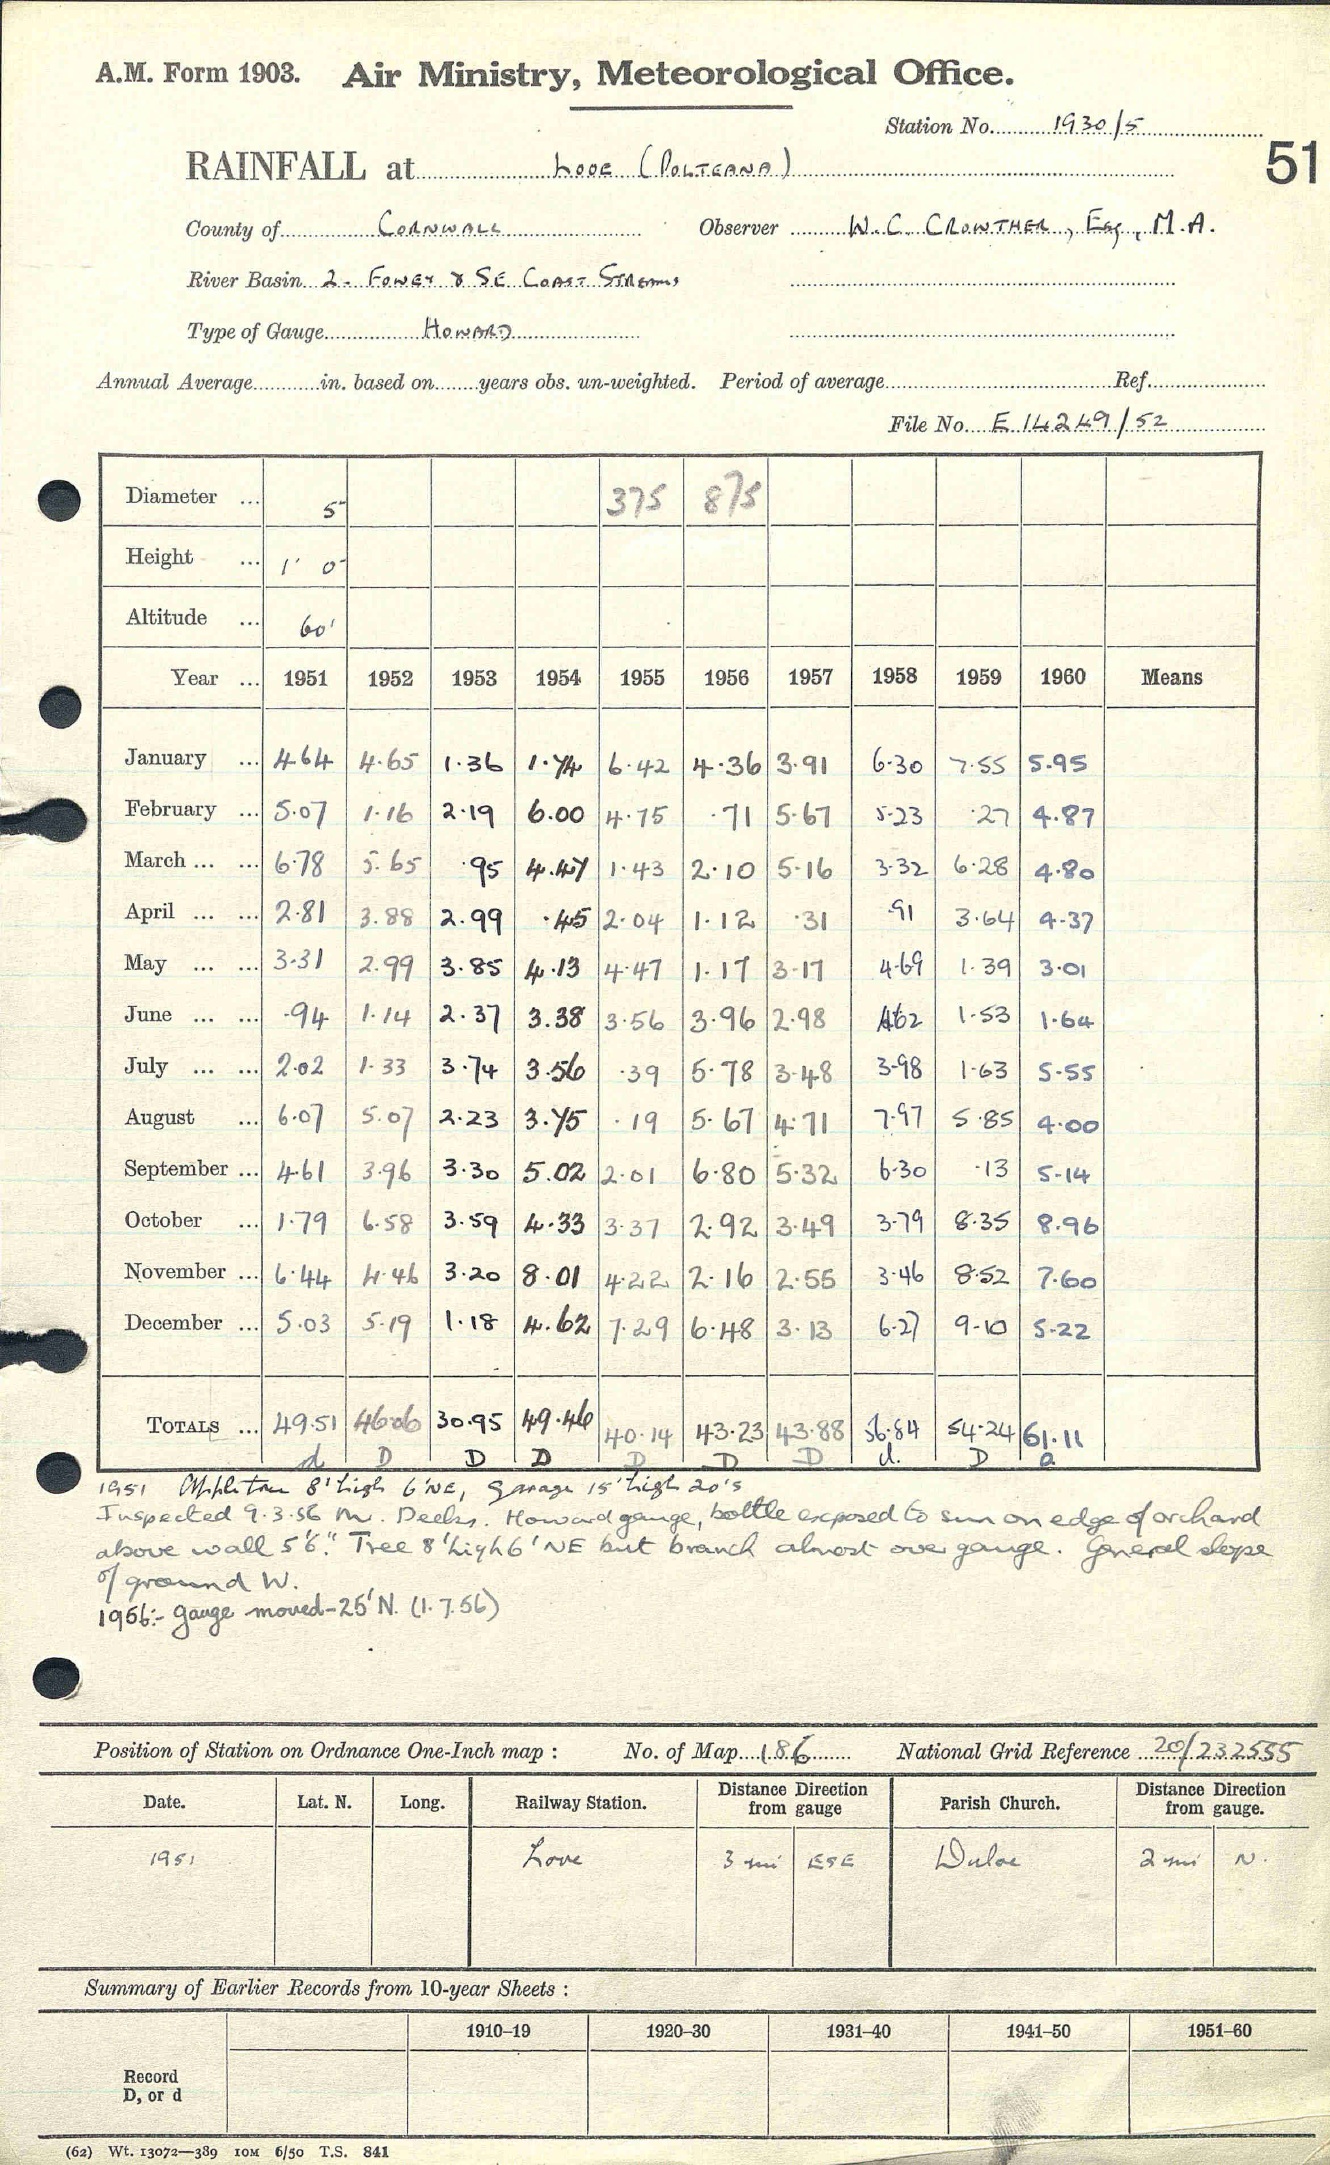 A.M. Form 1903. Air Ministry, Meteorological Office.
Station No. 1930/5
51
RAINFALL at LOOE (POLTEANA)
County of CORNWALL Observer W.C. CROWTHER, Esq, M.A.
River Basin 2 - FOWEY & SE COAST STREAMS
Type of Gauge HOWARD
Annual Average in. based on years obs. un-weighted. Period of average Ref.
File No. E 14249/52
Diameter ... 5" 375 875
Height ... 1' 0"
Altitude ... 60'
Year ... 1951 1952 1953 1954 1955 1956 1957 1958 1959 1960 Means
January ... 4.64 4.65 1.36 1.74 6.42 4.36 3.91 6.30 7.55 5.95
February ... 5.07 1.16 2.19 6.00 4.75 .71 5.67 5.23 .27 4.87
March ... ... 6.78 5.65 .95 4.47 1.43 2.10 5.16 3.32 6.28 4.80
April ... ... 2.81 3.88 2.99 .45 2.04 1.12 .31 .91 3.64 4.37
May ... ... 3.31 2.99 3.85 4.13 4.47 1.17 3.17 4.69 1.39 3.01
June ... ... .94 1.14 2.37 3.38 3.56 3.96 2.98 4.62 1.53 1.64
July ... ... 2.02 1.33 3.74 3.56 .39 5.78 3.48 3.98 1.63 5.55
August ... 6.07 5.07 2.23 3.75 .19 5.67 4.71 7.97 5.85 4.00
September ... 4.61 3.96 3.30 5.02 2.01 6.80 5.32 6.30 .13 5.14
October ... 1.79 6.58 3.59 4.33 3.37 2.92 3.49 3.79 8.35 8.96
November ... 6.44 4.46 3.20 8.01 4.22 2.16 2.55 3.46 8.52 7.60
December ... 5.03 5.19 1.18 4.62 7.29 6.48 3.13 6.27 9.10 5.22
TOTALS ... 49.51 46.06 30.95 49.46 40.14 43.23 43.88 56.84 54.24 61.11
d D D D D D D d. D a
1951 Appletree 8' high 6'NE, garage 15' high 20'S
Inspected 9.3.56 M. Deeks. Howard gauge, bottle exposed to sun on edge of orchard
above wall 5'6". Tree 8' high 6' NE but branch almost over gauge. General slope
of ground W.
1956:- gauge moved - 25' N. (1.7.56)
Position of Station on Ordnance One-Inch map : No. of Map 186 National Grid Reference 20/232555
Date. Lat. N. Long. Railway Station. Distance Direction from gauge Parish Church. Distance Direction from gauge.
1951 Looe 3 mi ESE Duloe 2 mi N.
Summary of Earlier Records from 10-year Sheets :
1910–19 1920–30 1931–40 1941–50 1951–60
Record
D, or d
(62) Wt. 13072—389 10M 6/50 T.S. 841